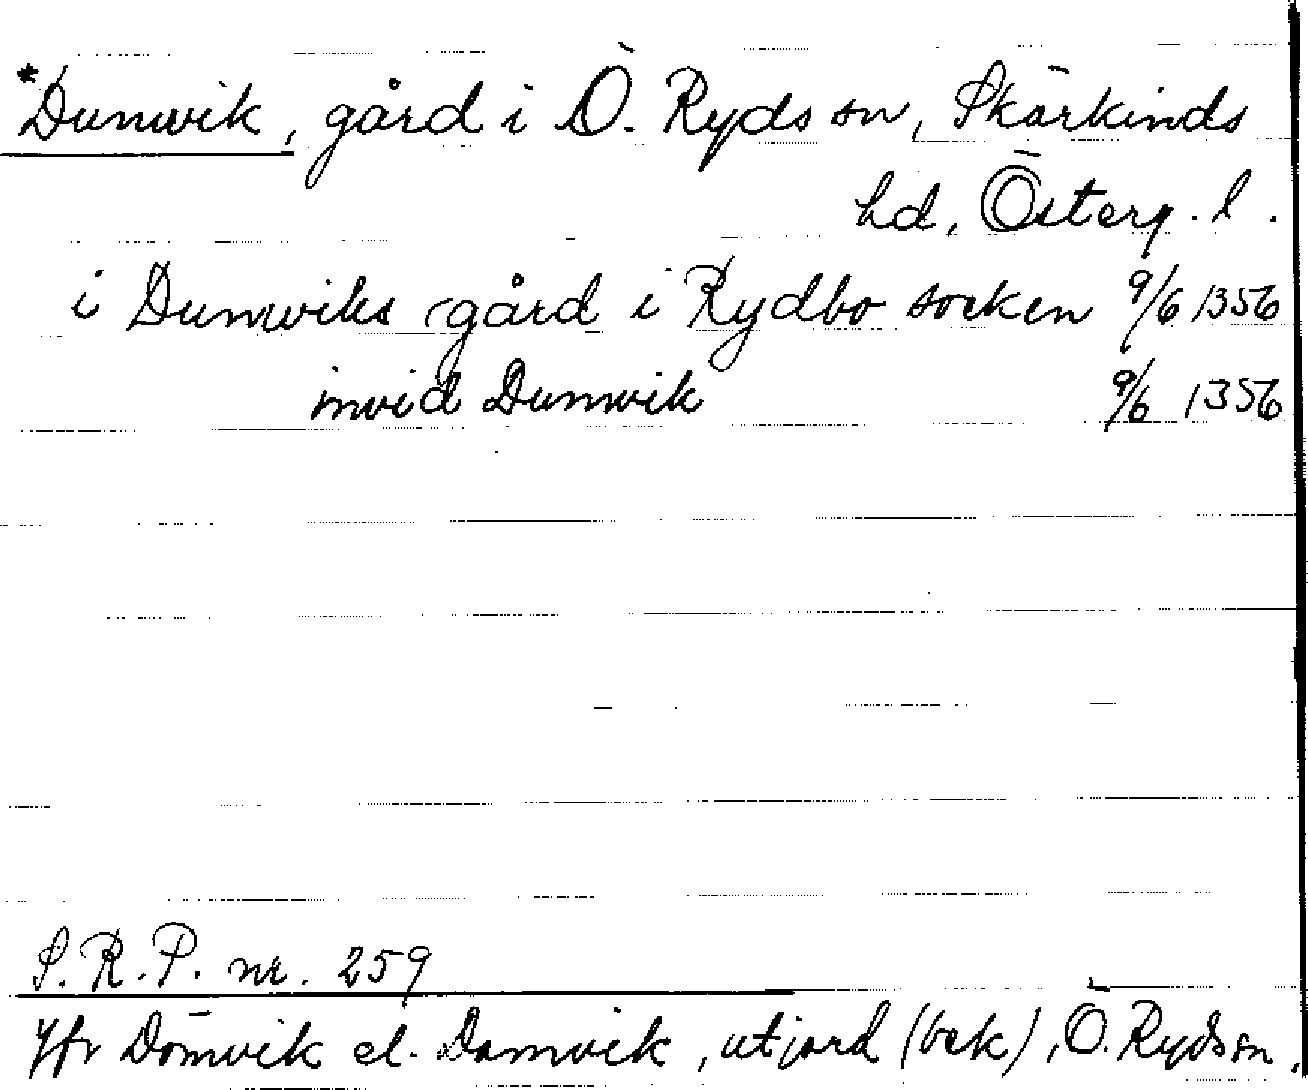 *Dunwik, gård i Ö. Ryds sn, Skärkinds
hd, Österg. l.
i Dunwiks gård i Rydbo socken 9/6 1356
invid Dunwik 9/6 1356
S.R.P. nr. 259
Jfr Dömvik el. Damvik, utjord (bek), Ö. Ryds sn.